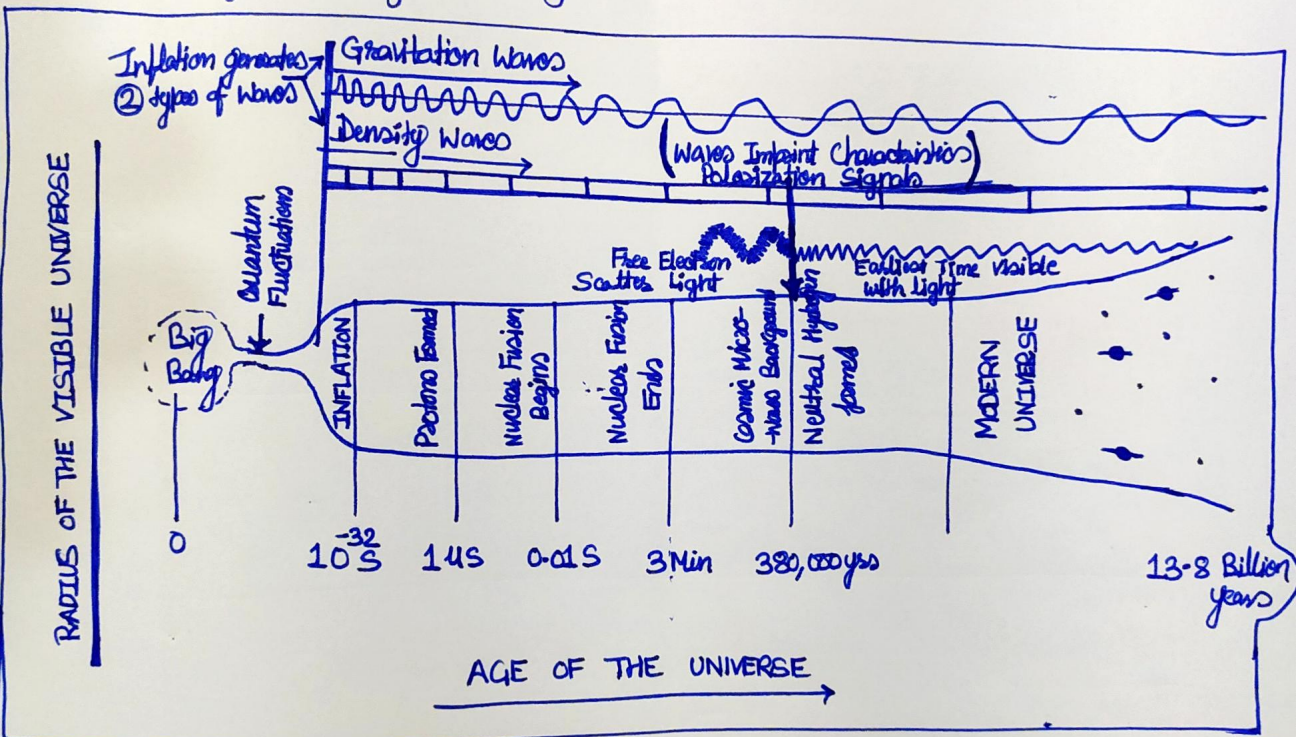 Inflation generates
② types of Waves
Gravitation Waves
Density Waves
(Waves Imprint Characteristics
Polarization Signals)
RADIUS OF THE VISIBLE UNIVERSE
Quantum
Fluctuations
Free Electron
Scatter Light
Earliest Time Visible
with light
Big
Bang
INFLATION
Protons Formed
Nuclear Fusion
Begins
Nuclear Fusion
Ends
Cosmic Micro-
-wave Background
Neutral Hydrogen
forms
MODERN
UNIVERSE
0
10⁻³² S
1 µS
0.01 S
3 Min
380,000 yrs
13.8 Billion
years
AGE OF THE UNIVERSE